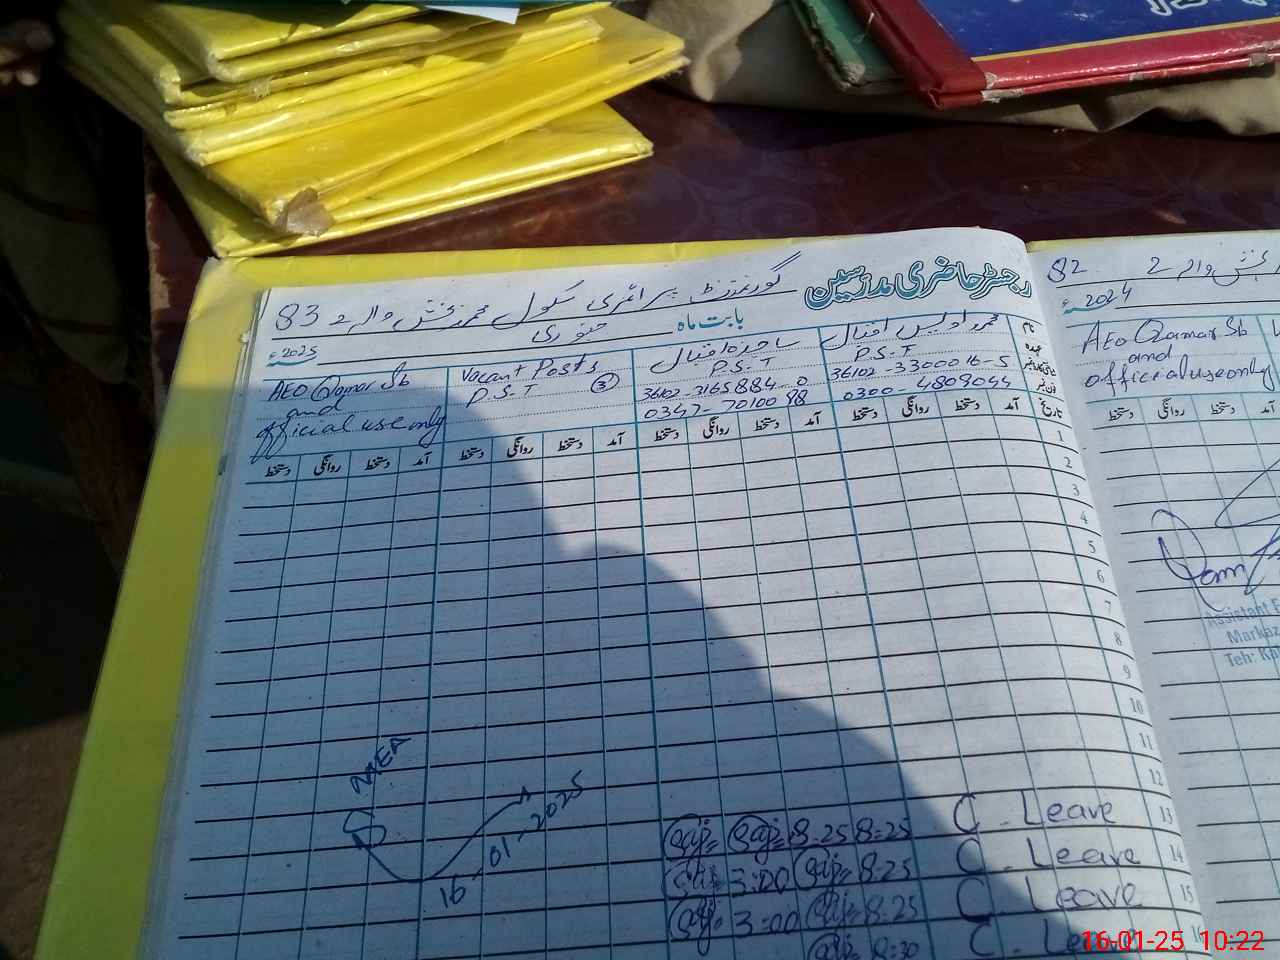 رجسٹر حاضری مدرسین
گورنمنٹ پرائمری سکول محمد بخش والہ 2 83
بابت ماہ جنوری 2025ء
نام
عہدہ
تاریخ
محمد اویس اقبال
P.S.T
36102-3300016-5
0300-4809044
ساجدہ اقبال
P.S.T
36102-3165884-0
0347-7010098
Vacant Posts
P.S.T (3)
AEO Qamar Sb
and
official use only
آمد دستخط روانگی دستخط
آمد دستخط روانگی دستخط
آمد دستخط روانگی دستخط
آمد دستخط روانگی دستخط
1
2
3
4
5
6
7
8
9
10
11
12
13 C. Leave 8:25 8:25
14 C. Leave 8:25 3:00
15 C. Leave 8:25 3:00
16 C. Leave 8:30
MEA
16-01-2025
82 والہ 2
2024ء
AEO Qamar Sb
and
official use only
آمد دستخط روانگی دستخط
Assistant E
Markaz
Teh: Kh
16-01-25 10:22